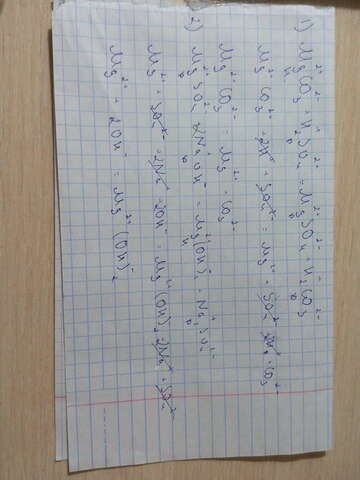 1) Mg²⁺CO₃²⁻ + H₂⁺SO₄²⁻ = Mg²⁺SO₄²⁻ + H₂CO₃²⁻
Mg²⁺ CO₃²⁻ + 2H⁺ + SO₄²⁻ = Mg²⁺ + SO₄²⁻ + 2H⁺ + CO₃²⁻
Mg²⁺ CO₃²⁻ = Mg²⁺ + CO₃²⁻
2) Mg²⁺SO₄²⁻ + 2Na⁺OH⁻ = Mg²⁺(OH)₂⁻ + Na₂⁺SO₄²⁻
Mg²⁺ + SO₄²⁻ + 2Na⁺ + 2OH⁻ = Mg²⁺(OH)₂ + 2Na⁺ + SO₄²⁻
Mg²⁺ + 2OH⁻ = Mg²⁺(OH)₂⁻